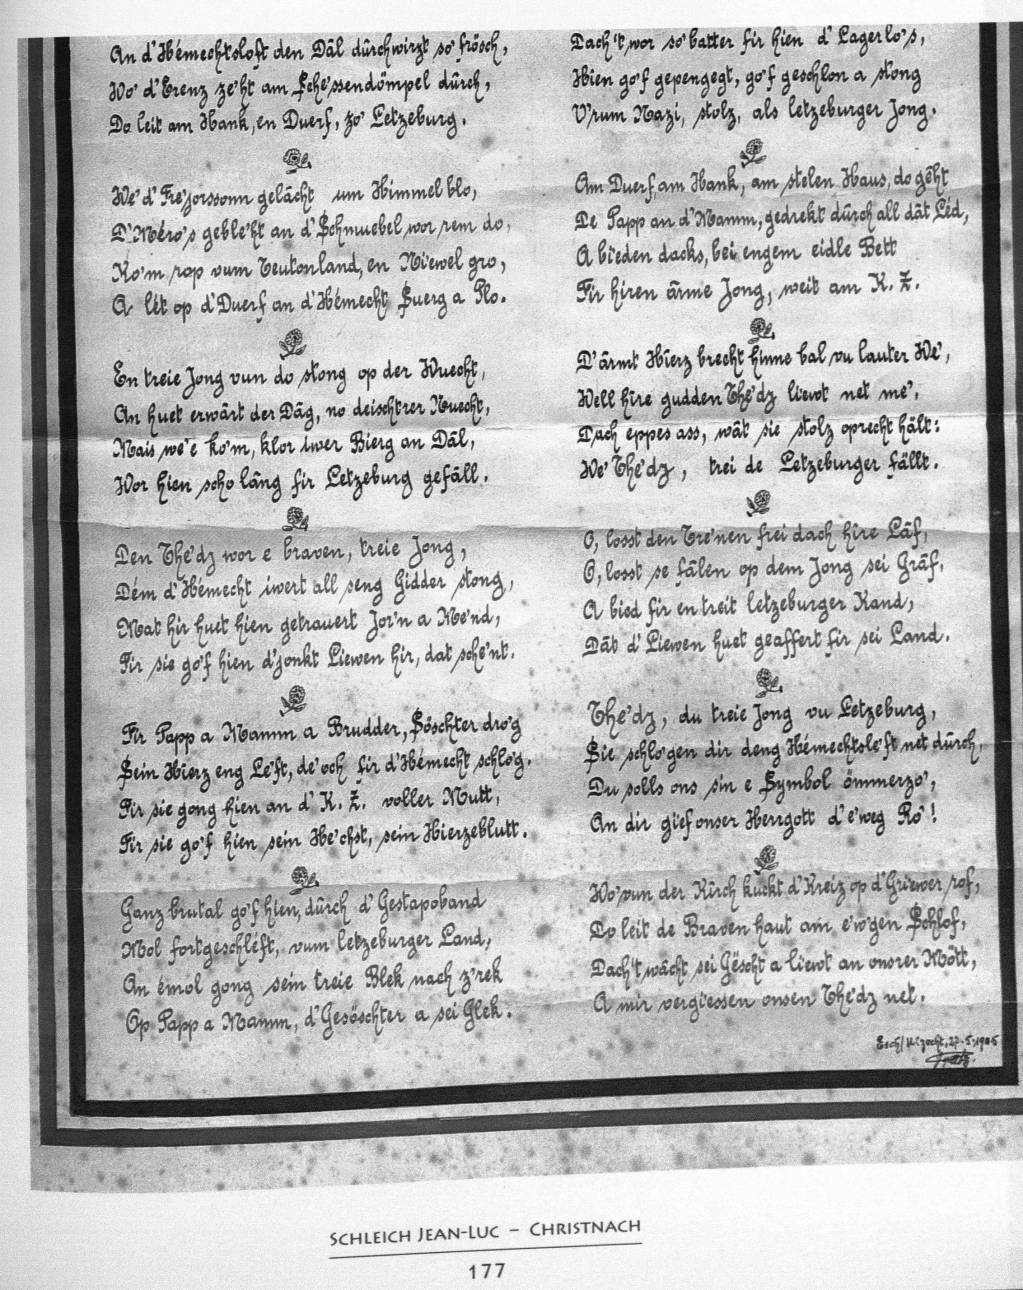 An d'Hémechtsloft den Däl dûrchwirzt so' frösch,
Wo' d'Erenz ze'ht am Sche'ssendömpel dûrch,
Do leit am Hank, en Duerf, zo' Letzeburg.
We' d'Fre'jorssonn gelächt um Himmel blo,
D'Méro's geble'ht an d'Schmuebel wor rem do,
Ko'm rop vum Teutonland, en Ni'ewel gro,
A lét op d'Duerf an d'Hémecht Suerg a Plo.
En treie Jong vun do stong op der Wuecht,
An huet erwârt der Däg, no deischtrer Nuecht,
Mais we' e ko'm, klor iwer Bierg an Däl,
Wor hien scho lâng fir Letzeburg gefäll.
Den The'dz wor e braven, treie Jong,
Dém d'Hémecht iwert all seng Gidder stong,
Mat hir huet hien getrauert Jor'n a Me'nd,
Fir sie go'f hien d'jonkt Liewen hir, dat sche'nt.
Fir Papp a Mamm a Brudder, Söschter dro'g
Sein Hierz eng Le'ft, de' och fir d'Hémecht schlo'g.
Fir sie gong hien an d' K. Z. voller Mutt,
Fir sie go'f hien sein He'chst, sein Hierzeblutt.
Ganz brutal go'f hien, dûrch d' Gestapoband
Mol fortgeschleft, vum letzeburger Land,
An émol gong sein treie Blek nach z'rek
Op Papp a Mamm, d'Gesöschter a sei Glek.
Dach 't wor so' batter fir hien d' Lagerlo's,
Hien go'f gepengegt, go'f geschlon a stong
V'rum Nazi, stolz, als letzeburger Jong.
Am Duerf, am Hank, am stelen Haus, do gêht
De Papp an d'Mamm, gedrekt dûrch all dät Léd,
A bieden dacks, bei engem eidle Bett
Fir hiren ärme Jong, weit am K. Z.
D'ärmt Hierz brecht hinne bal vu lauter We',
Well hire gudden The'dz liewt net me',
Dach eppes ass, wät sie stolz oprecht hält:
We' The'dz, trei de Letzeburger fällt.
O, losst den Tre'nen frei dach hire Läf,
O, losst se fälen op dem Jong sei Gräf,
A bied fir en treit letzeburger Kand,
Dät d' Liewen huet geaffert fir sei Land.
The'dz, du treie Jong vu Letzeburg,
Sie schlo'gen dir deng Hémechtsle'ft net dûrch,
Du solls ons sin e Symbol ömmerzo',
An dir gief onser Herrgott d'e'weg Ro'!
Wo' vun der Kîrch kuckt d'Kreiz op d'Griewer rof,
Do leit de Braven haut am e'w'gen Schlof,
Dach 't wächt sei Gëscht a liewt an onsrer Mött,
A mir vergiessen onsen The'dz net.
SCHLEICH JEAN-LUC – CHRISTNACH
177